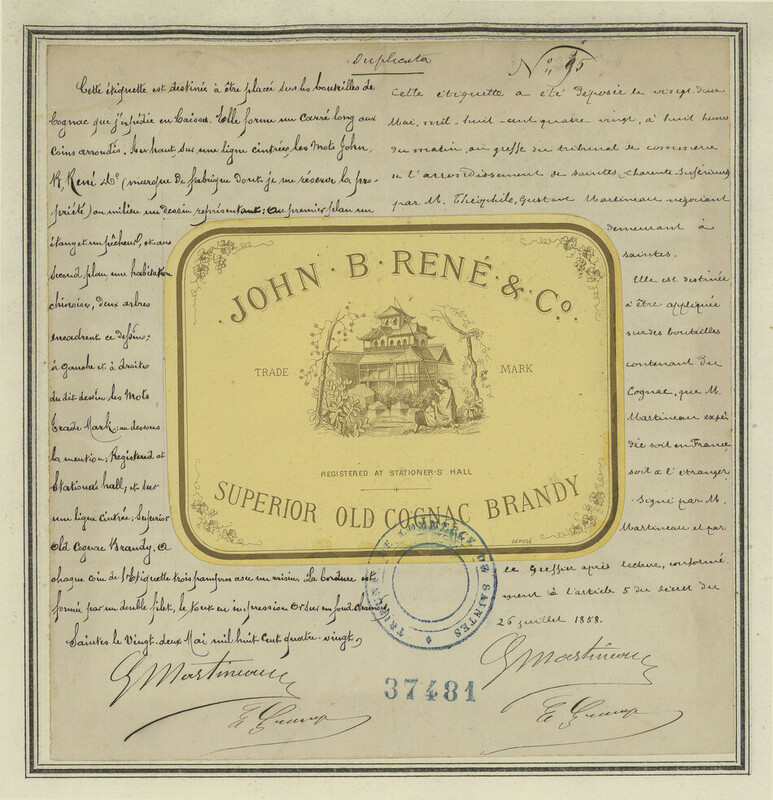 Duplicata
No 95
Cette étiquette est destinée à être placé sur les bouteilles de
Cognac que j'expédie en Caisses. Elle forme un carré long aux
coins arrondis. En haut, sur une ligne cintrée, les mots John
B. René & Co (marque de fabrique dont je me réserve la pro-
priété) au milieu un dessin représentant: au premier plan un
étang et un pêcheur, et au
second plan une habitation
chinoise, deux arbres
encadrent ce dessin;
à gauche et à droite
du dit dessin les mots
Trade Mark; au dessous
la mention; Registered at
Stationer's hall, et sur
une ligne cintrée; Superior
Old Cognac Brandy. A
chaque coin de l'étiquette trois pampres avec un raisin. La bordure est
formée par un double filet, le tout en impression Or sur un fond
Saintes le Vingt-deux Mai mil huit Cent quatre-vingt
G Martineau
Cette étiquette a été déposée le vingt-deux
Mai, mil-huit-cent quatre vingt, à huit heures
du matin, au greffe du tribunal de commerce
de l'arrondissement de Saintes, (Charente Inférieure)
par M. Théophile, Gustave Martineau négociant
demeurant à
Saintes.
Elle est destinée
à être appliquée
sur des bouteilles
contenant du
Cognac, que M.
Martineau expé-
die soit en France
soit à l'étranger
Signé par M.
Martineau et par
le Greffier après lecture, conformé-
ment à l'article 5 du décret du
26 juillet 1858.
G Martineau
JOHN · B · RENÉ · & Co.
TRADE MARK
REGISTERED AT STATIONER'S HALL
SUPERIOR OLD COGNAC BRANDY
DÉPOSÉ
TRIBUNAL DE COMMERCE DE SAINTES
37481